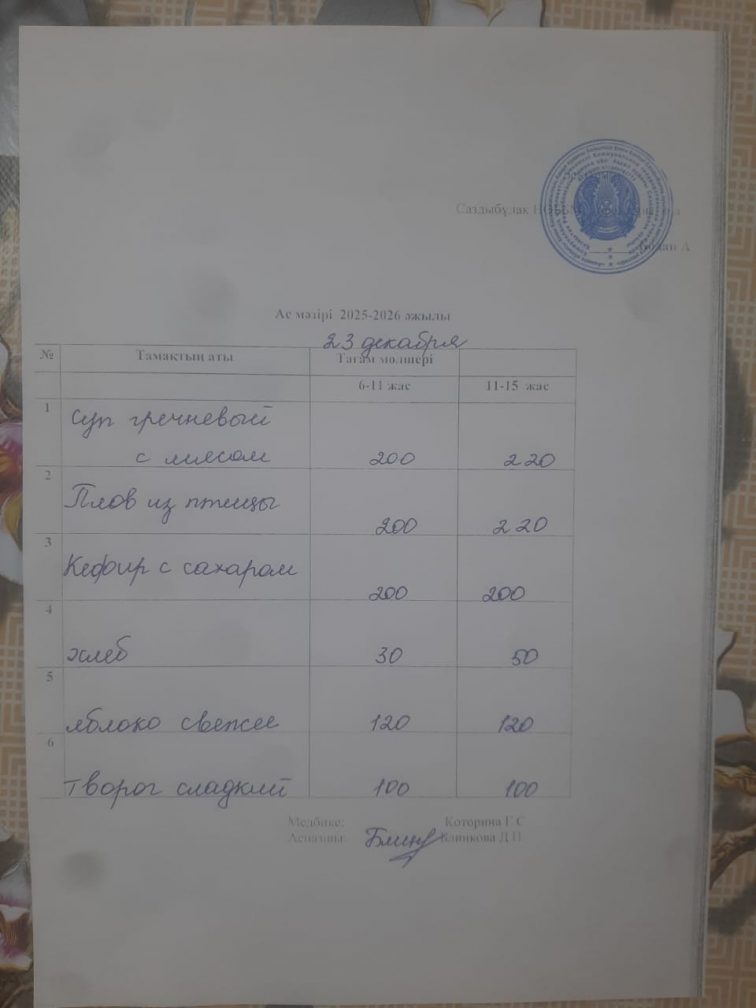 Саздыбұлак
Ас мәзірі 2025-2026 әжылы
23 декабря
№ Тамақтың аты Тағам мөлшері
6-11 жас 11-15 жас
1 Суп гречневый
с мясом 200 220
2 Плов из птицы
200 220
3 Кефир с сахаром
200 200
4 хлеб 30 50
5 яблоко свежее 120 120
6 творог сладкий 100 100
Медбике: Которина Г.С
Аспазшы: Блинкова Д.П